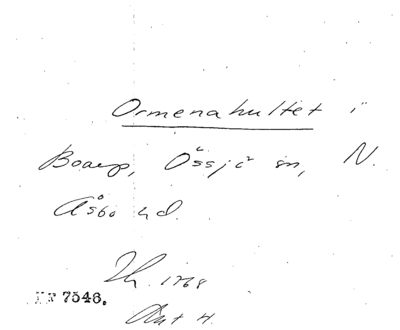 Ormenahultet i
Boarp, Össjö sn, N.
Åsbo hd.
1768
7546.